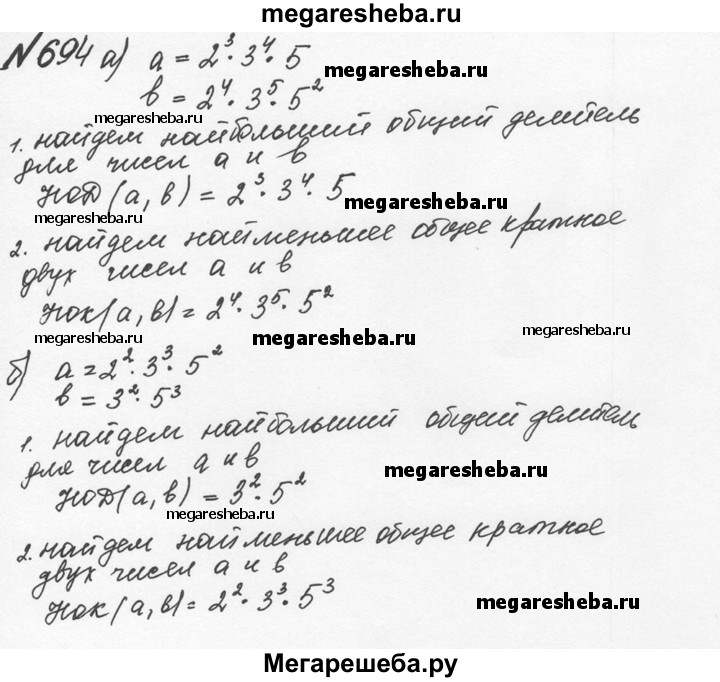 megaresheba.ru
№694 а) a = 2³·3⁴·5
megaresheba.ru
b = 2⁴·3⁵·5²
megaresheba.ru
1. найдем наибольший общий делитель
для чисел a и b
НОД(a, b) = 2³·3⁴·5
megaresheba.ru
megaresheba.ru
2. найдем найменьшее общее кратное
двух чисел a и b
НОК(a, b) = 2⁴·3⁵·5²
megaresheba.ru
megaresheba.ru
megaresheba.ru
б) a = 2²·3³·5²
b = 3²·5³
1. найдем наибольший общий делитель
для чисел a и b
megaresheba.ru
НОД(a, b) = 3²·5²
megaresheba.ru
2. найдем найменьшее общее кратное
двух чисел a и b
НОК(a, b) = 2²·3³·5³
megaresheba.ru
Мегарешеба.ру